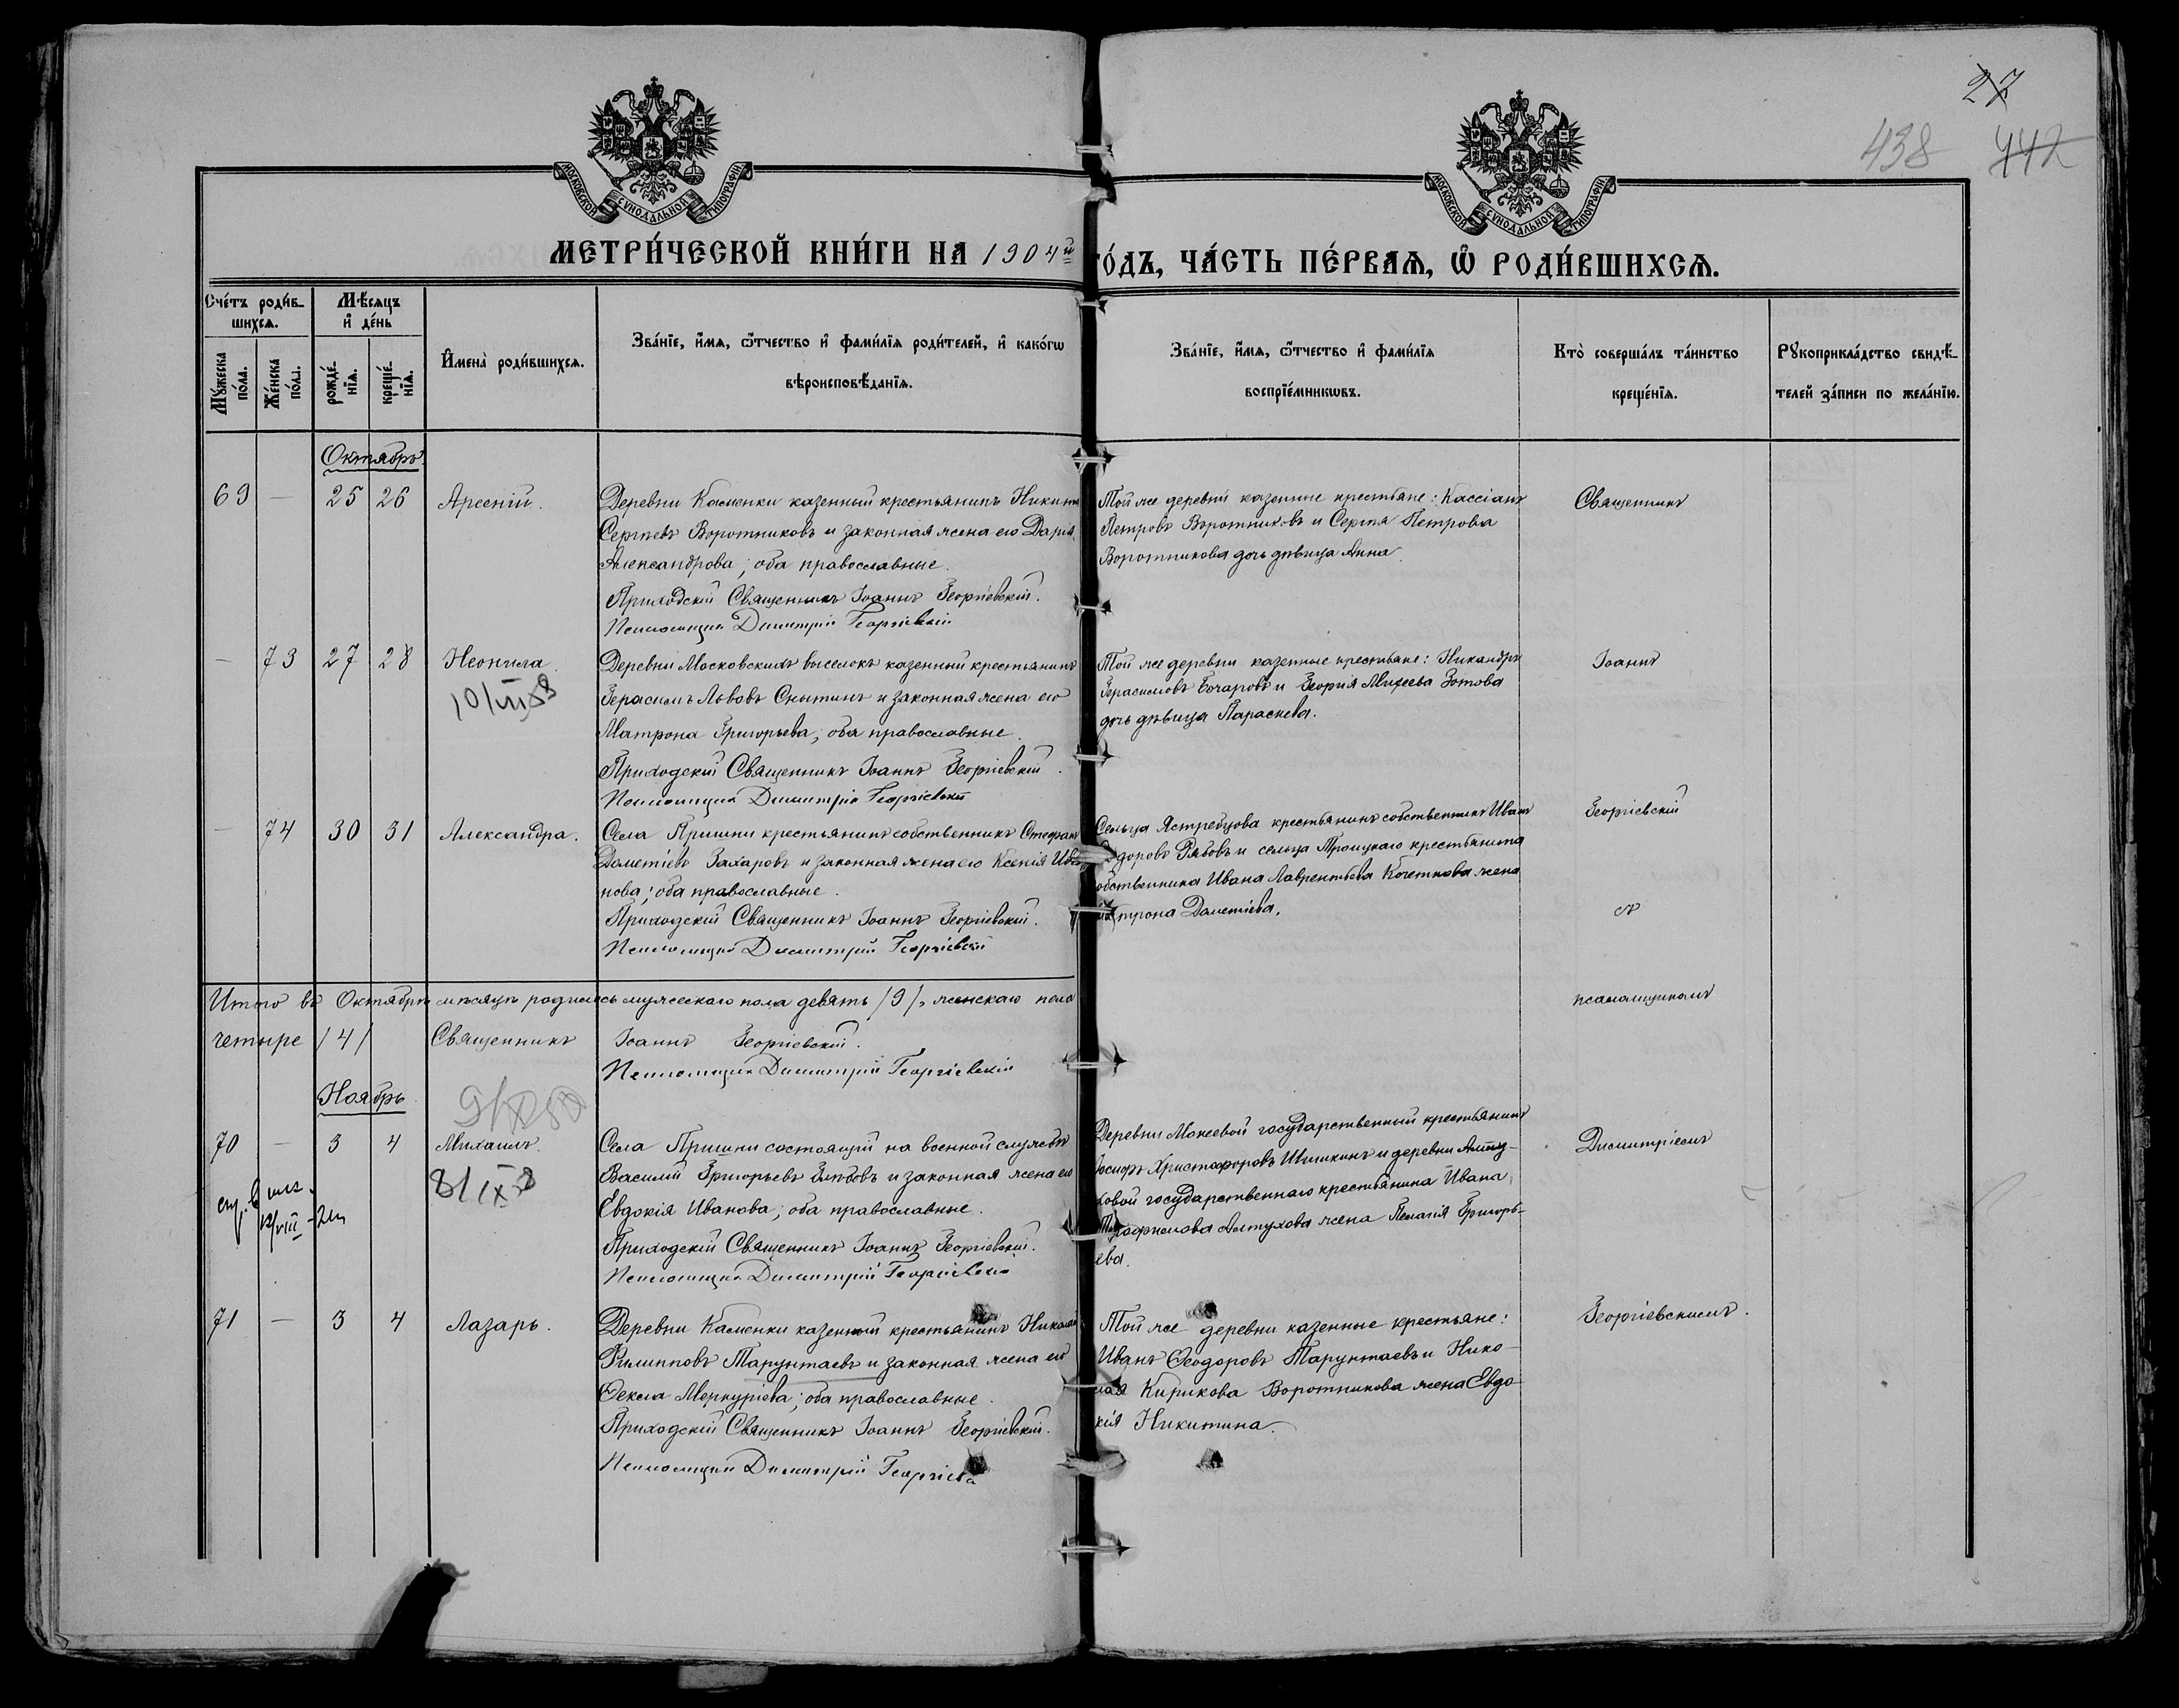 27
438 442
МОСКОВСКОЙ СУНОДАЛЬНОЙ ТИПОГРАФІИ
МОСКОВСКОЙ СУНОДАЛЬНОЙ ТИПОГРАФІИ
МЕТРИ́ЧЕСКОЙ КНИ́ГИ НА 1904й ГО́ДЪ, ЧА́СТЬ ПЕ́РВАѦ, Ѡ҆ РОДИ́ВШИХСѦ.
Сче́тъ роди́в-
шихсѧ.
Мѣ́сѧцъ
и҆ де́нь
Мꙋ́жеска
по́ла.
Же́нска
по́ла.
рожде́-
нїѧ.
креще́-
нїѧ.
И҆мена̀ роди́вшихсѧ.
Зва́нїе, и҆́мѧ, ѻ҆́тчество и҆ фами́лїѧ роди́телей, и҆ како́гѡ
вѣроисповѣ́данїѧ.
Зва́нїе, и҆́мѧ, ѻ҆́тчество и҆ фами́лїѧ
воспрїе́мникѡвъ.
Кто̀ соверша́лъ та́инство
креще́нїѧ.
Рꙋкоприкла́дство свидѣ́-
телей за́писи по жела́нїю.
Октябрь.
69 — 25 26 Арсеній.
Деревни Каменки казенный крестьянинъ Никита
Сергѣевъ Воротниковъ и законная жена его Дарія
Александрова; оба православные.
Приходскій Священникъ Іоаннъ Георгіевскій.
Псаломщикъ Димитрій Георгіевскій
Той же деревни казенные крестьяне: Кассіанъ
Петровъ Воротниковъ и Сергѣя Петрова
Воротникова дочь дѣвица Анна.
Священникъ
— 73 27 28 Неонила.
10/VII 88
Деревни Московскихъ выселокъ казенный крестьянинъ
Герасимъ Львовъ Сны­тинъ и законная жена его
Матрона Григорьева; оба православные.
Приходскій Священникъ Іоаннъ Георгіевскій.
Псаломщикъ Димитрій Георгіевскій
Той же деревни казенные крестьяне: Никандръ
Герасимовъ Бочаровъ и Георгія Михеева Зотова
дочь дѣвица Параскева.
Іоаннъ
— 74 30 31 Александра.
Села Пришни крестьянинъ собственникъ Стефанъ
Дометіевъ Захаровъ и законная жена его Ксенія Ива-
нова; оба православные.
Приходскій Священникъ Іоаннъ Георгіевскій.
Псаломщикъ Димитрій Георгіевскій
Сельца Ястребцова крестьянинъ собственникъ Иванъ
Ѳедоровъ Рябовъ и сельца Троицкаго крестьянина
собственника Ивана Лаврентьева Кочеткова жена
Матрона Дометіева.
Георгіевскій
съ
Итого въ Октябрѣ мѣсяцѣ родилось мужескаго пола девять /9/, женскаго пола
четыре /4/ Священникъ Іоаннъ Георгіевскій.
Псаломщикъ Димитрій Георгіевскій
псаломщикомъ
Ноябрь
70 — 3 4 Михаилъ.
8/IX
Села Пришни состоящій на военной службѣ
Василій Григорьевъ Глѣбовъ и законная жена его
Евдокія Иванова; оба православные.
Приходскій Священникъ Іоаннъ Георгіевскій.
Псаломщикъ Димитрій Георгіевскій
Деревни Мокеевой государственный крестьянинъ
Іосифъ Христофоровъ Шишкинъ и деревни Алту-
ховой государственнаго крестьянина Ивана
Алтухова жена Пелагія Григорь-
ева.
Димитріемъ
71 — 3 4 Лазарь.
Деревни Каменки казенный крестьянинъ Николай
Филипповъ Тарунтаевъ и законная жена его
Ѳекла Меркуріева; оба православные.
Приходскій Священникъ Іоаннъ Георгіевскій.
Псаломщикъ Димитрій Георгіевскій
Той же деревни казенные крестьяне:
Иванъ Ѳеодоровъ Тарунтаевъ и Нико-
лая Кирикова Воротникова жена Евдо-
кія Никитина.
Георгіевскимъ.